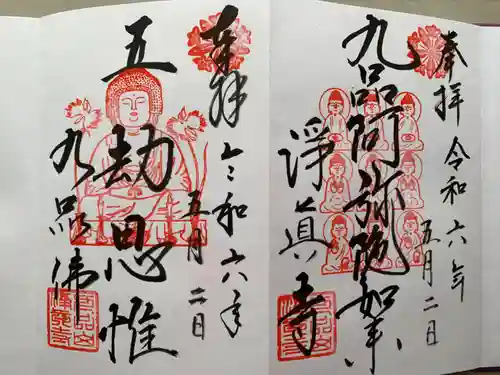 奉拝 令和六年
五月二日
九品阿弥陀如来
淨真寺
奉拝 令和六年
五月二日
五劫思惟
九品佛